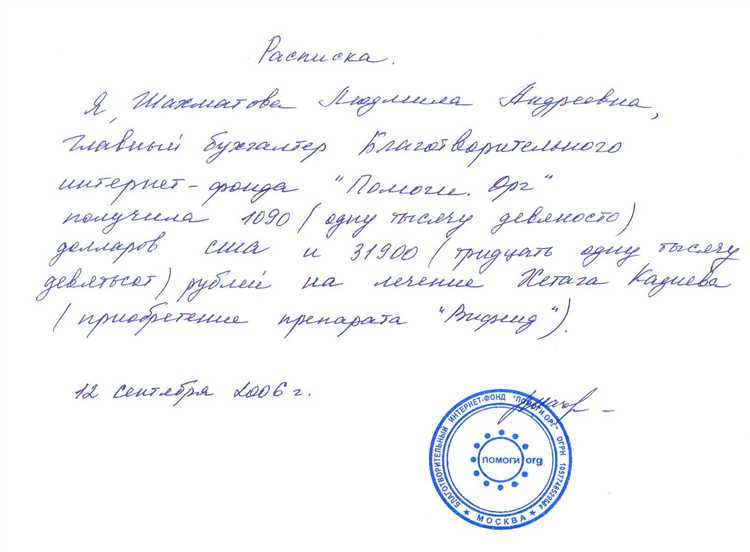 Расписка.
Я, Шахматова Людмила Андреевна,
главный бухгалтер Благотворительного
интернет-фонда "Помоги. Орг"
получила 1090 (одну тысячу девяносто)
долларов сша и 31900 (тридцать одну тысячу
девятьсот) рублей на лечение Хетага Кадиева
(приобретение препарата "Вифенд").
12 сентября 2006 г.
БЛАГОТВОРИТЕЛЬНЫЙ ИНТЕРНЕТ-ФОНД "ПОМОГИ.ОРГ" ОГРН
ПОМОГИ org
★ МОСКВА ★